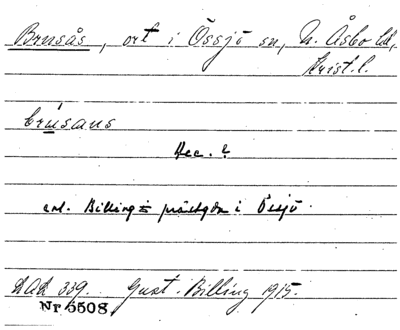 Brusås, ort i Össjö sn, N. Åsbo hd,
Krist. l.
brùsaus
Acc. 2
enl. Billing i prästgdn i Össjö.
LAL 339. Gust. Billing 1915.
Nr 6508